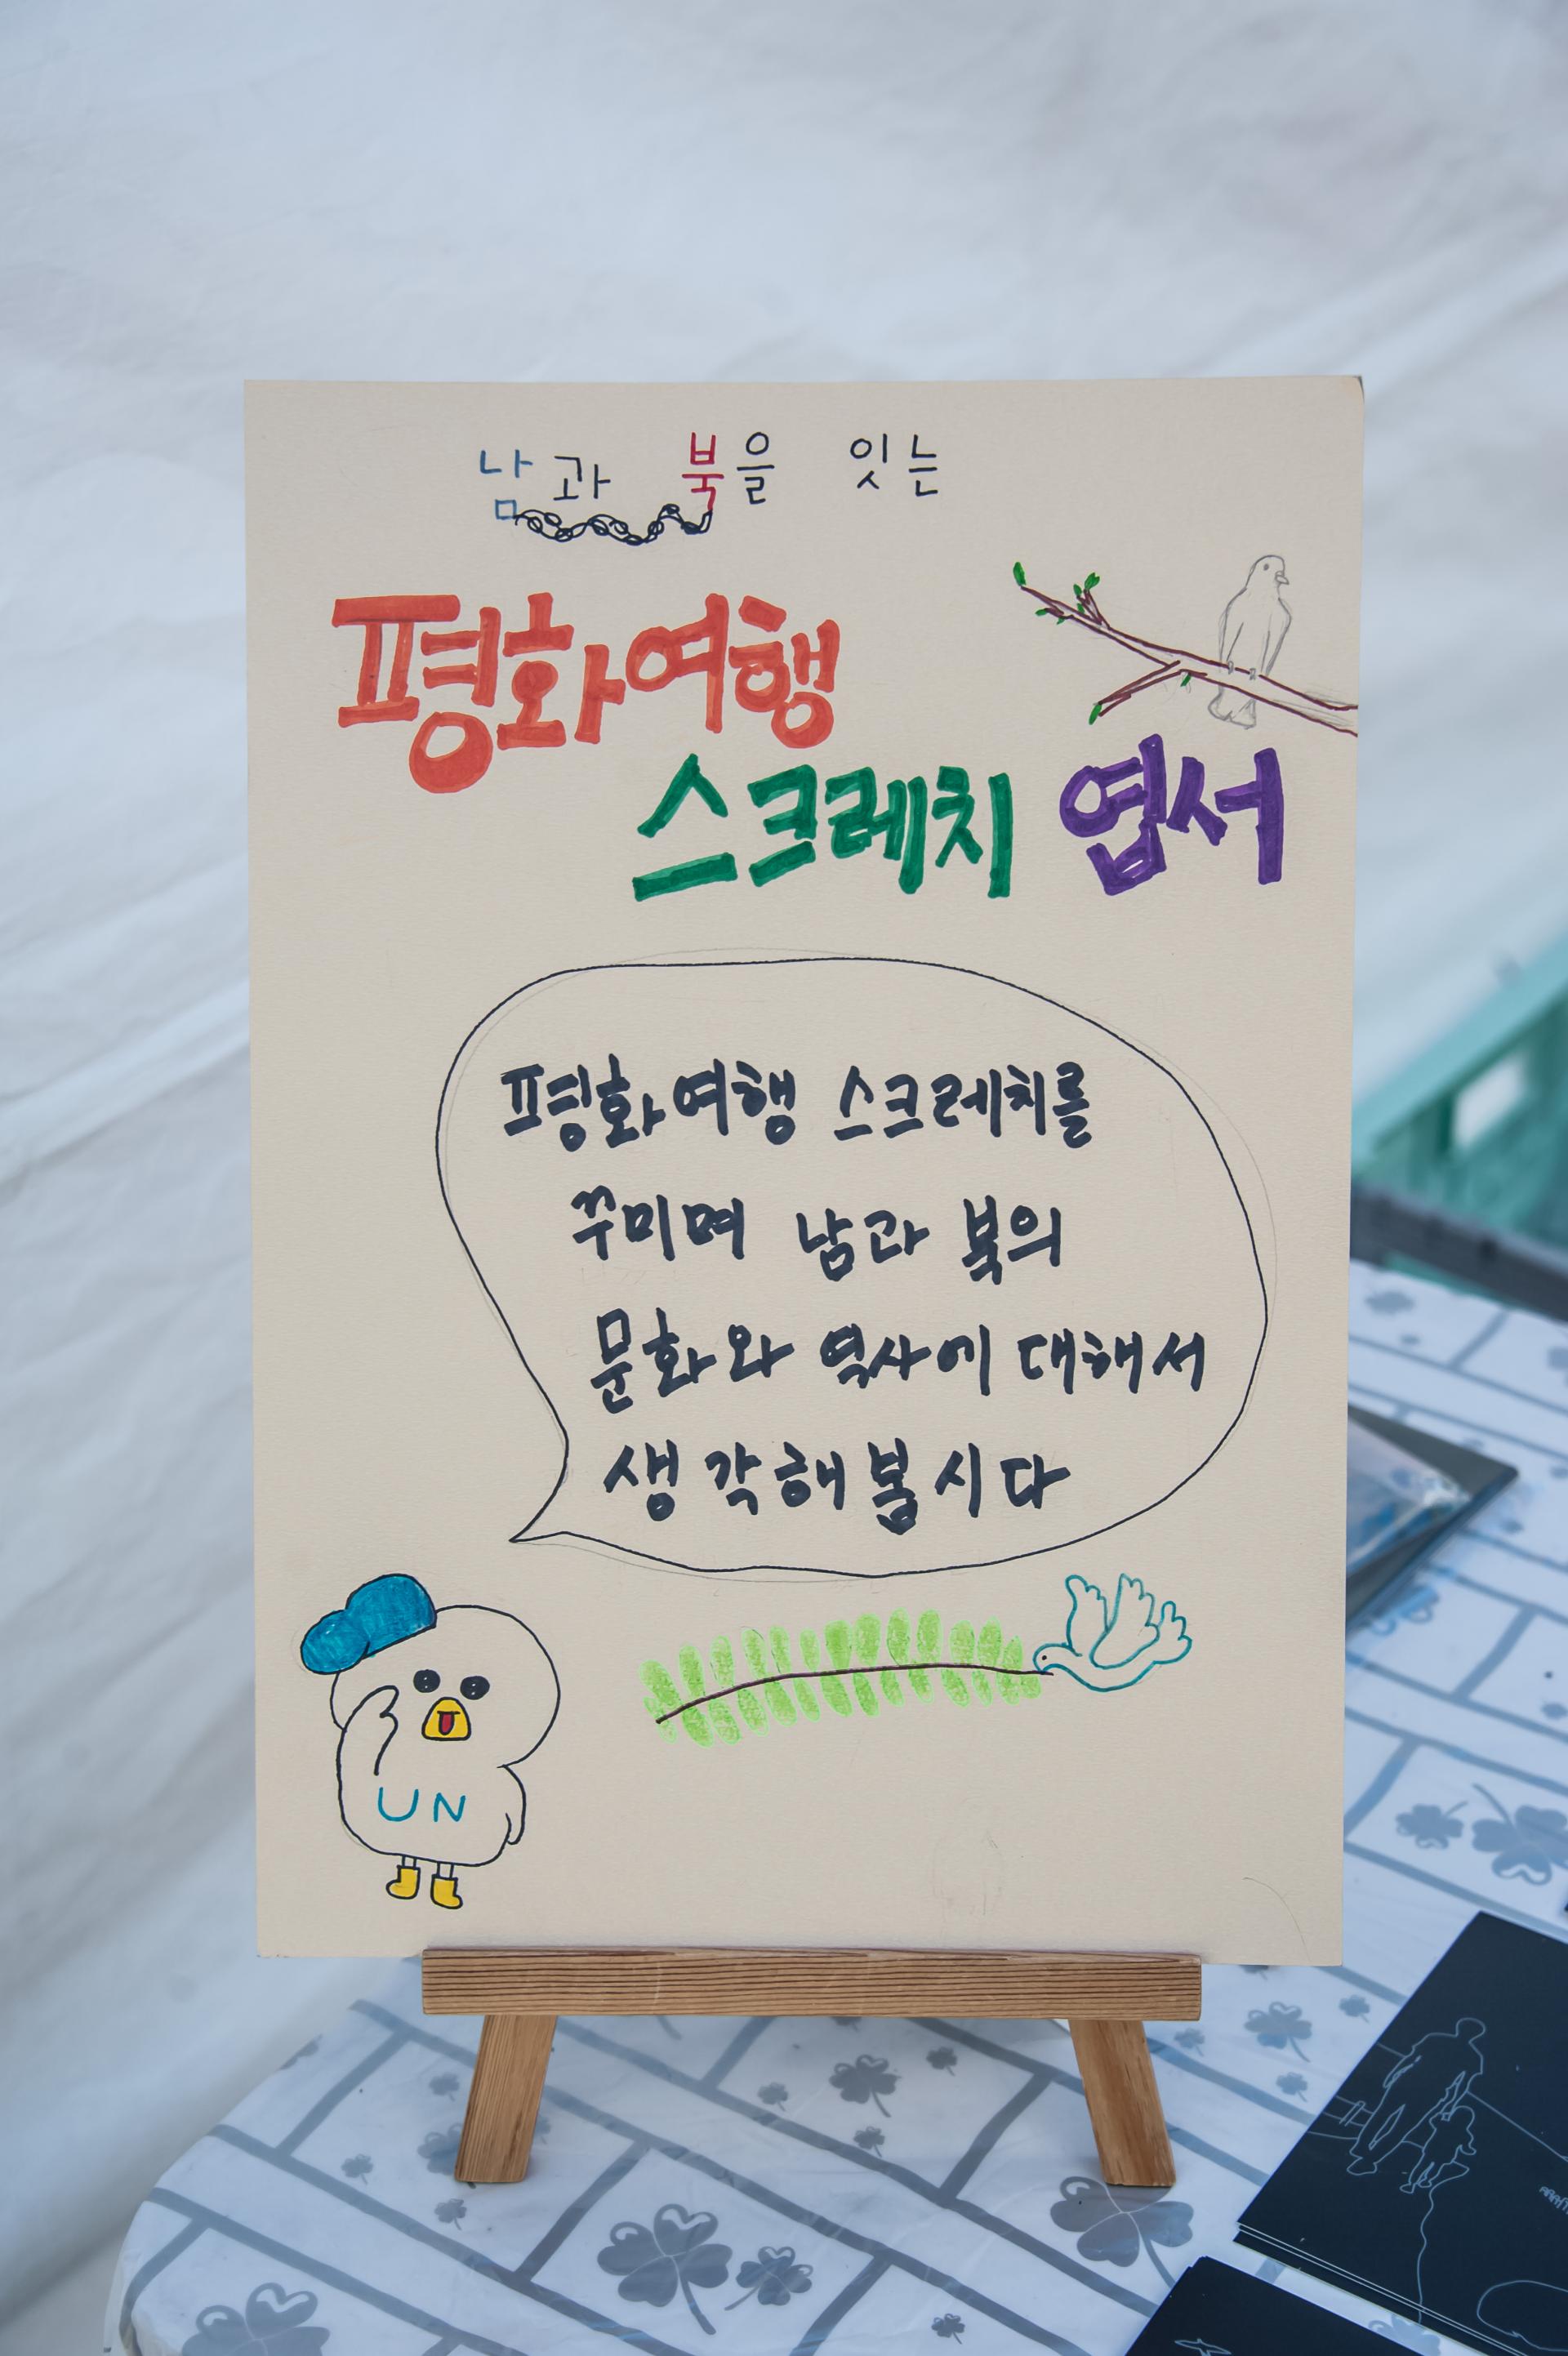 남과 북을 잇는
평화여행
스크레치 엽서
평화여행 스크레치를
꾸미며 남과 북의
문화와 역사에 대해서
생각해봅시다
UN